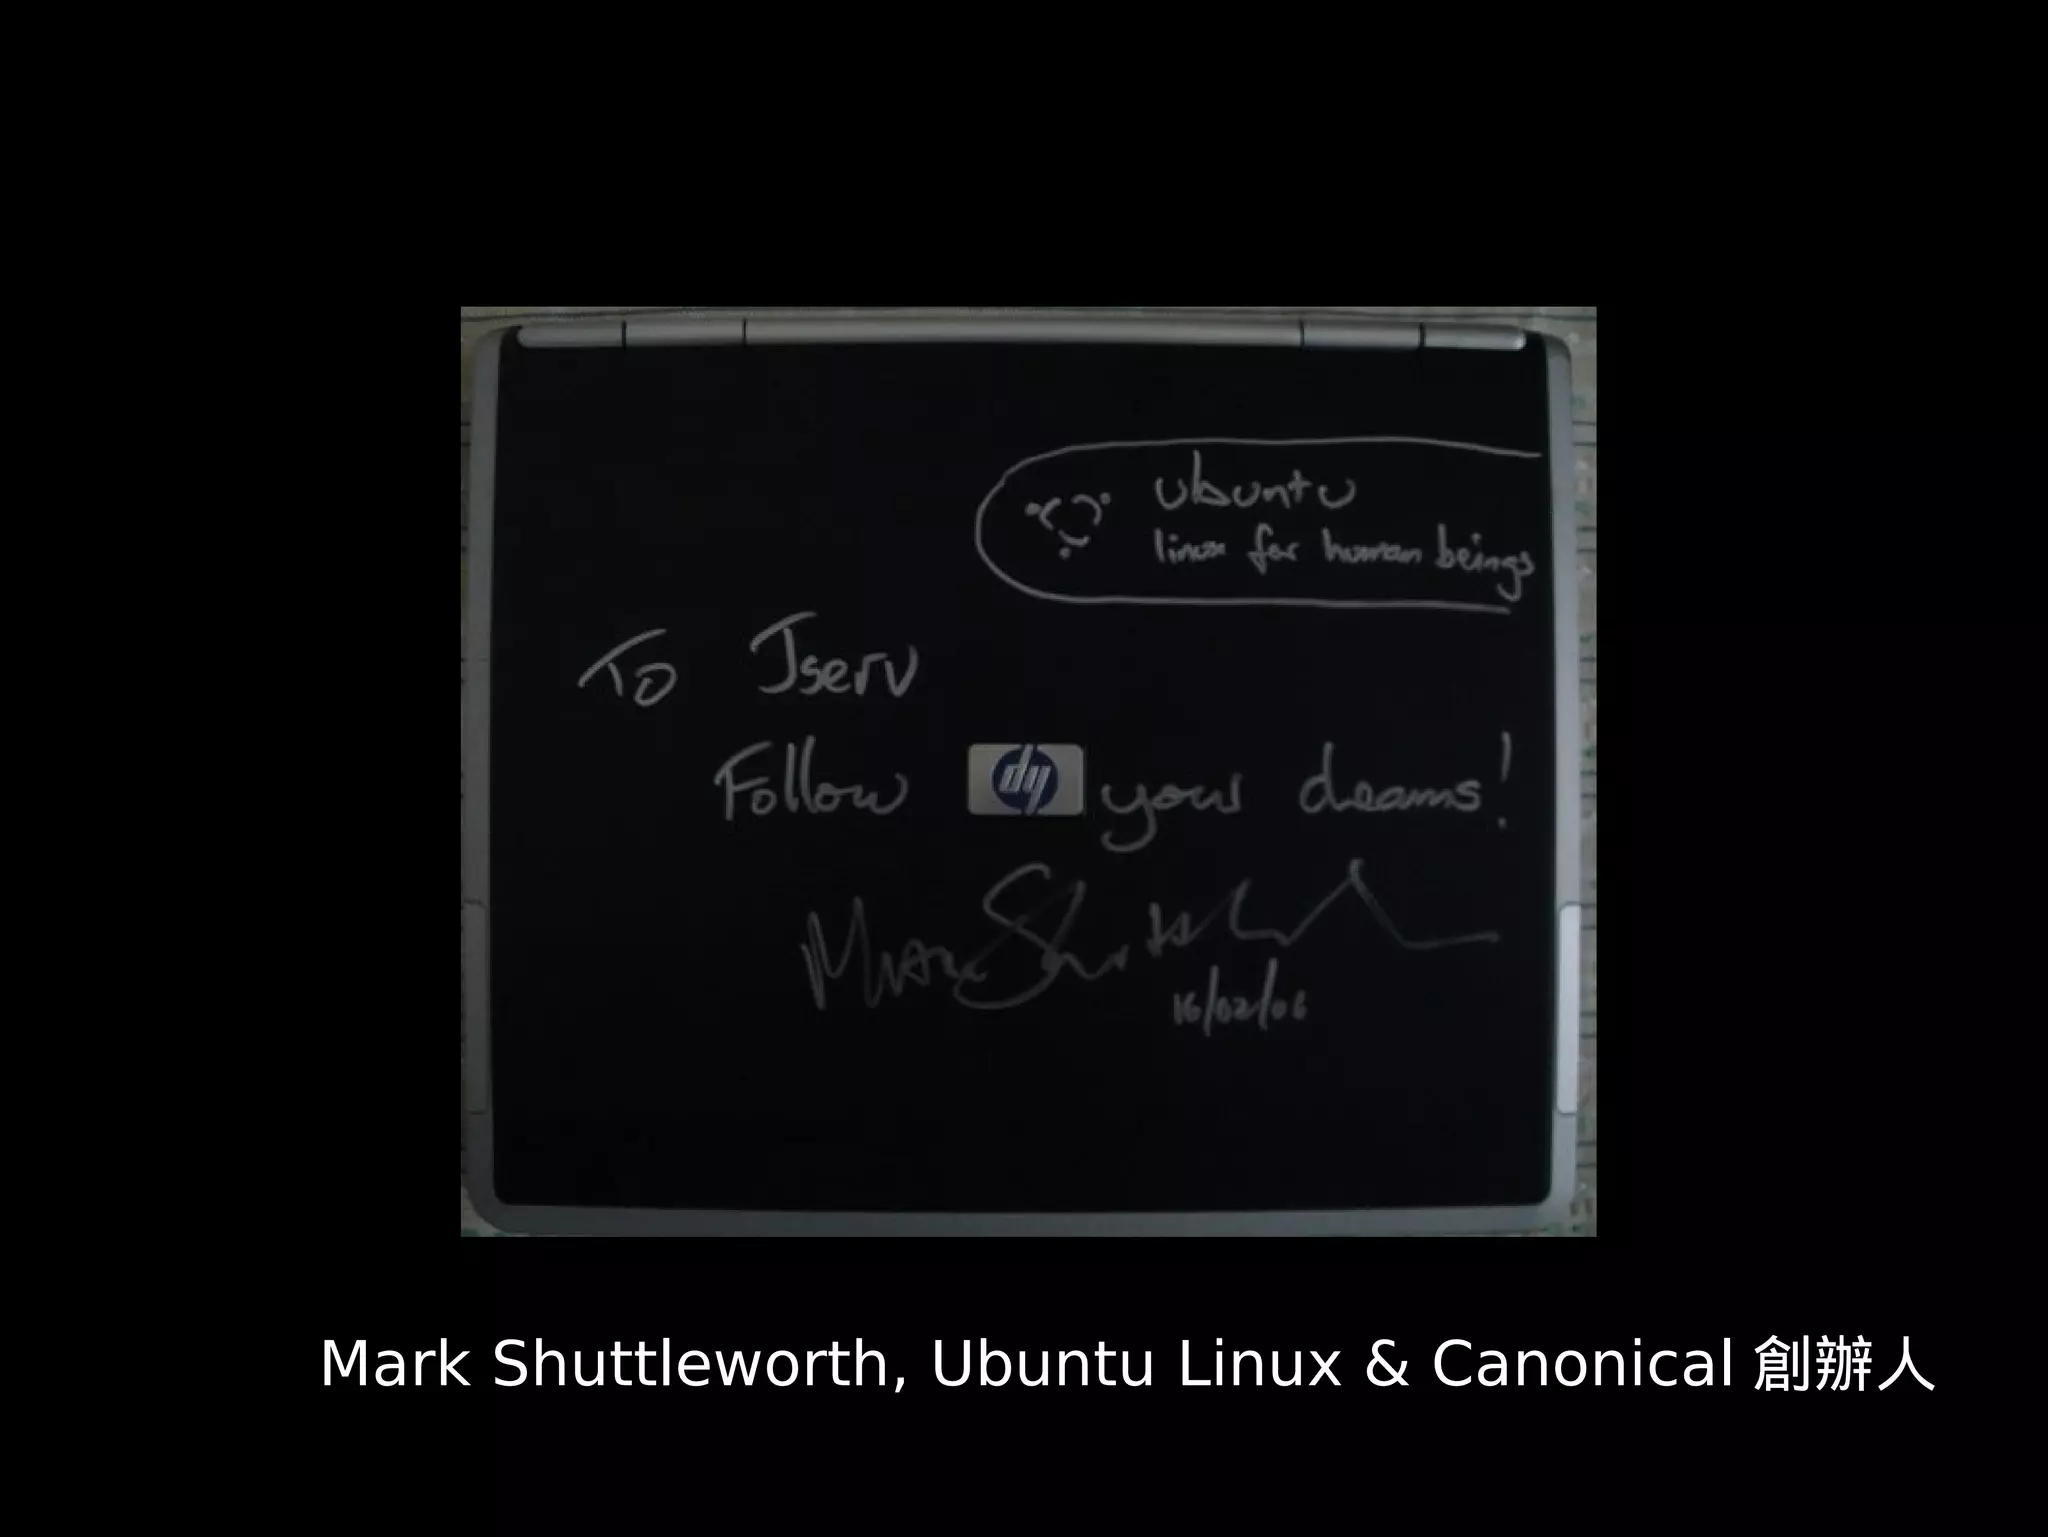 ubuntu
linux for human beings
To Jserv
Follow hp your dreams!
Mark Shuttleworth
16/02/06
Mark Shuttleworth, Ubuntu Linux & Canonical 創辦人